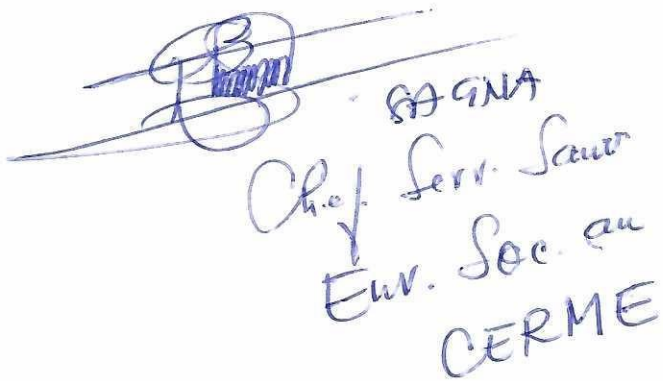 SAGNA
Chef Serv. Sanit
Env. Soc. au
CERME